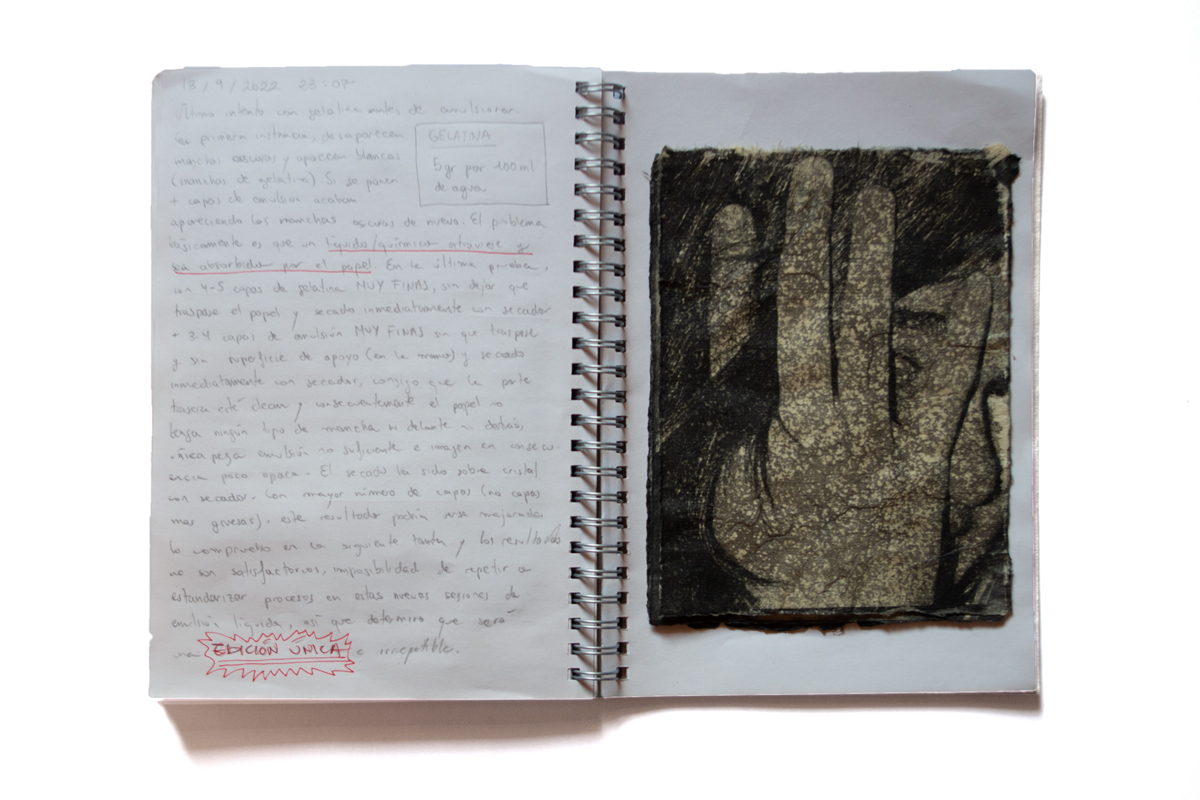 13/9/2022 23:07
Último intento con gelatina antes de emulsionar.
En primera instancia, desaparecen
manchas oscuras y aparecen blancas
(manchas de gelatina) Si se ponen
+ capas de emulsión acaban
apareciendo las manchas oscuras de nuevo. El problema
básicamente es que un líquido/químico atraviese y
sea absorbido por el papel. En la última prueba,
con 4-5 capas de gelatina MUY FINAS, sin dejar que
traspase el papel y secado inmediatamente con secador
+ 3-4 capas de emulsión MUY FINAS sin que traspase
y sin superficie de apoyo (en la mano) y secado
inmediatamente con secador, consigo que la parte
trasera esté clean y consecuentemente el papel no
tenga ningún tipo de mancha ni delante ni detrás,
única pega emulsión no suficiente e imagen en consecu-
encia poco opaca. El secado ha sido sobre cristal
con secador. Con mayor número de capas (no capas
más gruesas), este resultado podría verse mejorado
lo compruebo en la siguiente tanda y los resultados
no son satisfactorios, imposibilidad de repetir o
estandarizar procesos en estas nuevas sesiones de
emulsión líquida, así que determino que será
una EDICIÓN UNICA e irrepetible.
GELATINA
5gr por 100ml
de agua